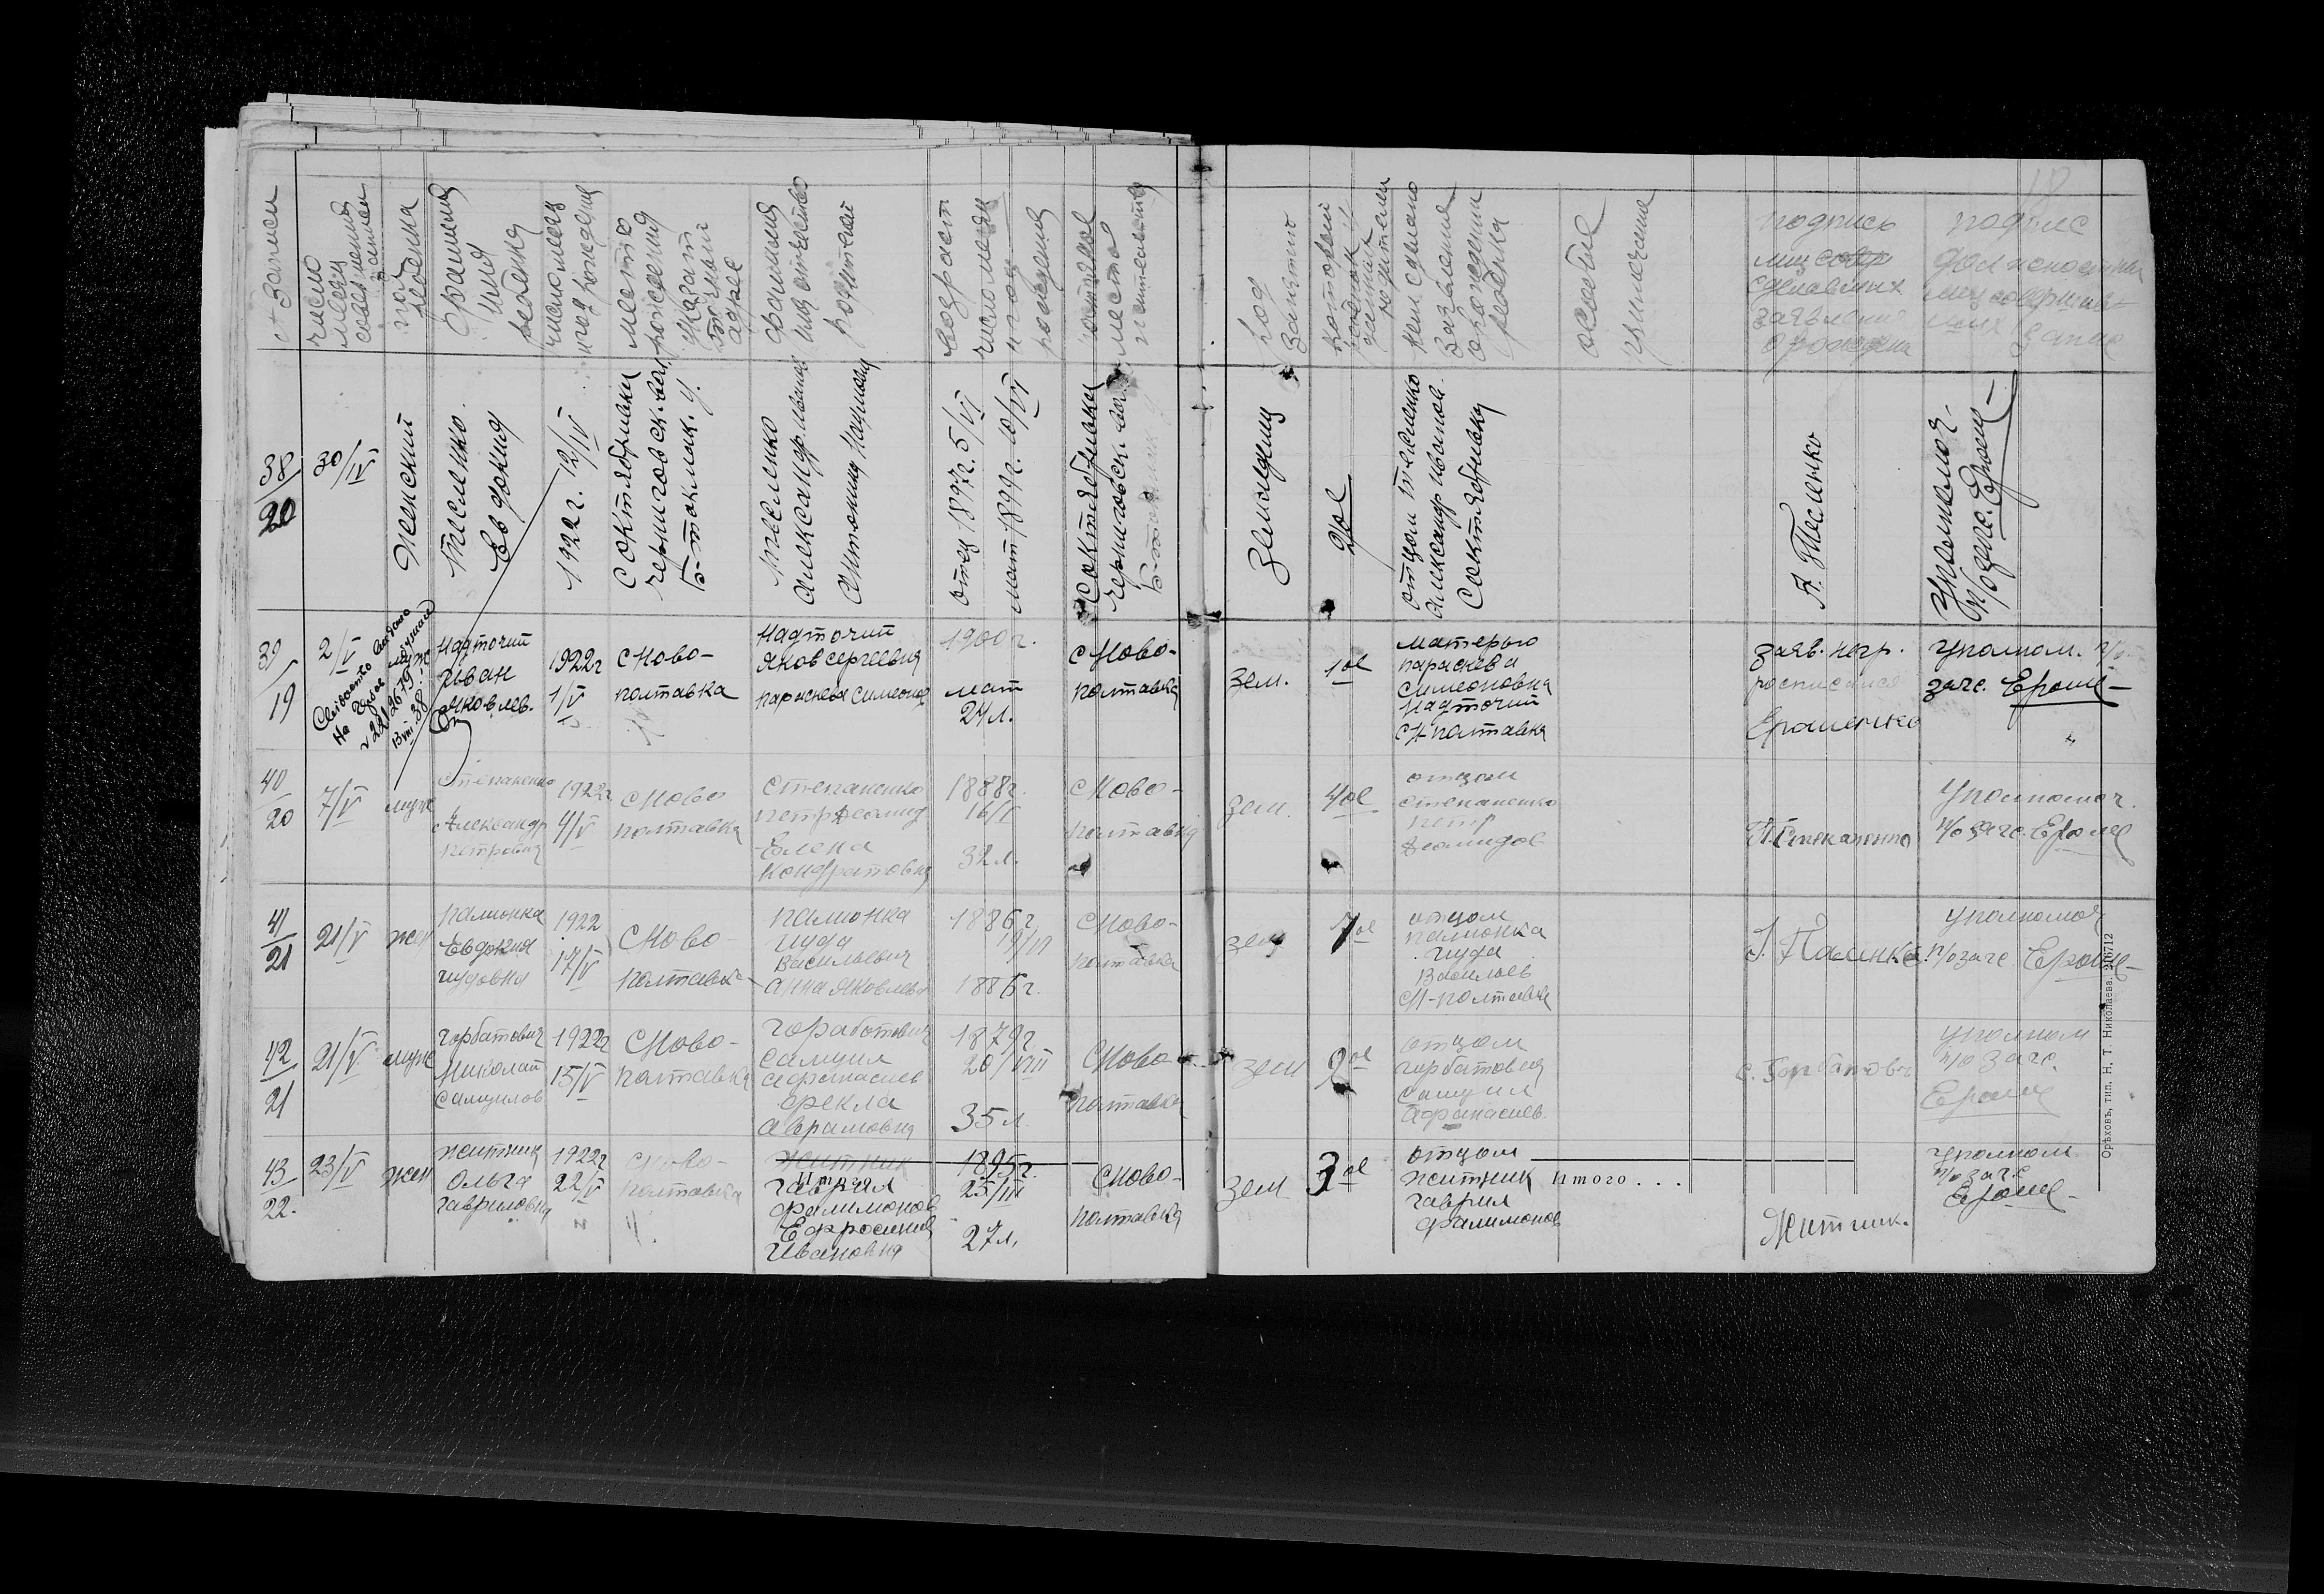 число
месяц
пол
ребенка
фамилия
имя
ребенка
место
рождения
указат
точный
адрес
фамилия
имя отчество
родителей
возраст
число месяц
и год
рождения
постоянное
место
жительство
род
занятий
который
ребенок
кем сделано
заявление
о рождении
ребенка
особые
примечания
подпись
лиц
сделавших
заявление
о рождении
подпис
должностных
лиц
запис
18
38/20
30/IV
Женский
Тесленко
Евдокия
1922 г. 12/IV
Октябрьки
Черниговск. вол.
Б-токмак. у.
Тесленко
Александр Иванов
Антонина Наумовна
отец 1897 г. 5/VI
мат 1899 г. 10/VI
Октябрьки
Черниговск. вол.
Б-токмак. у
Земледелец
2ое
отцом Тесленко
Александр Иванов.
С Октябрьки
А. Тесленко
Уполномоч.
п/о загс. Ерош
39/19
2/V
муж
Свидетельство выдано
13/VIII 38
Надточий
Иван
Яковлев.
1922г
1/V
с Ново-
полтавка
Надточий
Яков Сергеевич
Параскева Симеонов
1900 г.
мат
24 л.
с Ново-
полтавка
зем.
1ое
матерью
Параскева
Симеоновна
Надточий
с Н-полтавка
заяв. негр.
росписался
Ерошенко
Уполном. п/о
загс. Ерош
"
40/20
7/V
муж
Степаненко
Александр
Петрович
1922г
4/V
с Ново
полтавка
Степаненко
Петр Деомид
Елена
Кондратовна
1888г.
16/I
32 л.
с Ново-
полтавка
зем.
4ое
отцом
Степаненко
Петр
Деомидов
П. Степаненко
Уполномоч.
п/о загс. Ерош
41/21
21/V
жен
Палионка
Евдокия
Иудовна
1922
17/V
с Ново-
полтавка
Палионка
Иуда
Васильевич
Анна Яковлевн
1886 г,
1886 г.
с Ново-
полтавка
зем
7ое
отцом
Палионка
Иуда
Васильев
с Н-полтавка
Уполномоч
п/о загс. Ерош
42/21
21/V
муж
Горбатович
Николай
Самуилов
1922г
15/V
с Ново-
полтавка
Горбатович
Самуил
Афанасиев
Фекла
Аврамовна
1879г
20/VIII
35 л.
с Ново-
полтавка
зем
9ое
отцом
Горбатович
Самуил
Афанасиев.
С. Горбатович
Уполном
п/о загс.
Ерош
43/22.
23/V
жен
Житник
Ольга
Гавриловна
1922г
22/V
с Ново-
полтавка
Житник
Гаврил
Филимонов
Ефросиния
Ивановна
1895г.
25/III
27 л.
с Ново-
полтавка
зем
3ое
отцом
Житник
Гаврил
Филимонов
Итого . . .
Житник.
Уполном
п/о загс
Ерош
Орѣховъ, тип. Н. Т. Николаева.